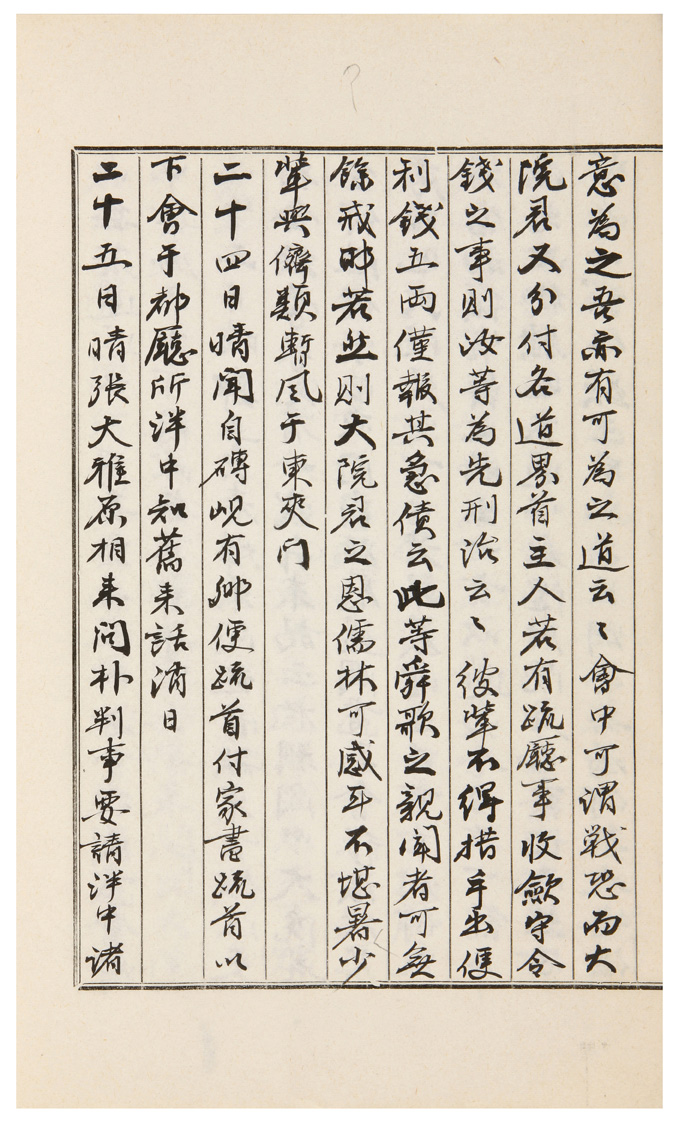 意為之吾亦有可為之道云〻會中可謂戰恐而大
院君又分付各道界首主人若有疏廳事收斂守令
錢之事則汝等為先刑治云〻彼輩不得措手出便
利錢五兩僅報其急債云此等舜歌之親聞者可無
餘戒耶若然則大院君之恩儒林可感耳不堪暑少
輩與儕類暫風于東夾门
二十四日晴聞自磚峴有鄉便疏首付家書疏首以
下會于都廳所泮中知舊来話消日
二十五日晴張大雅原相来问朴判事要請泮中諸